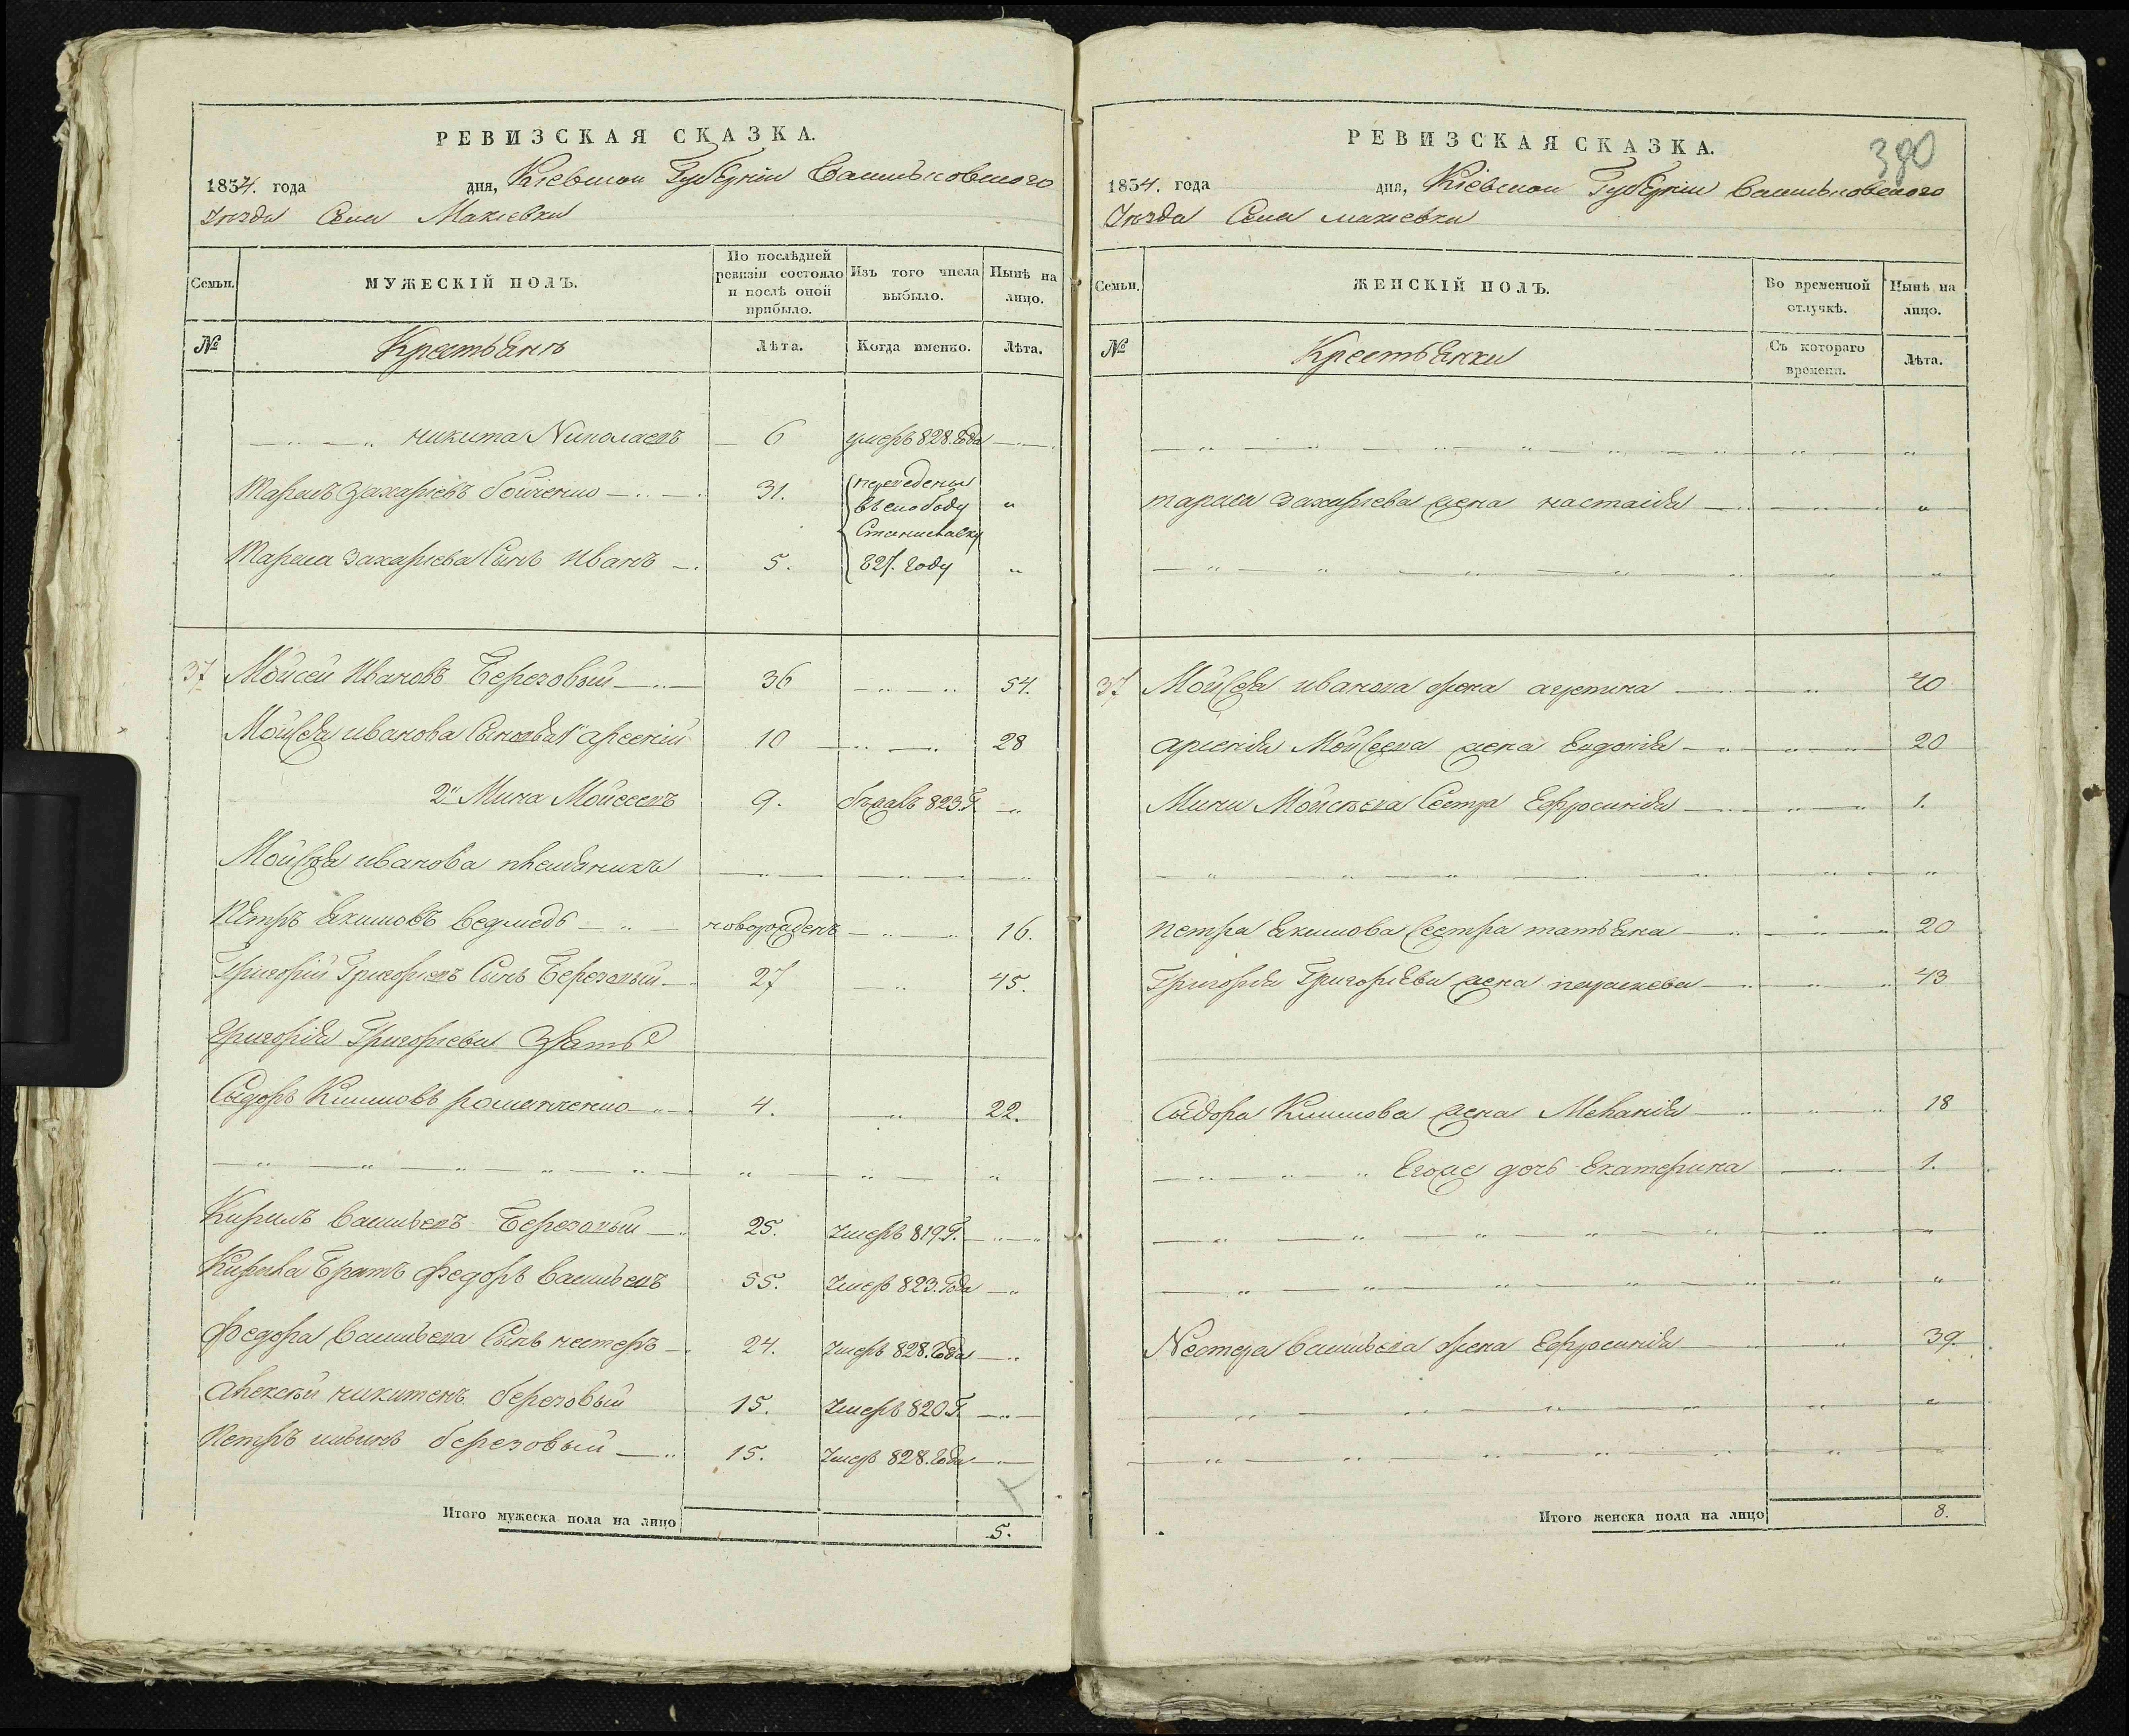 РЕВИЗСКАЯ СКАЗКА.
1834. года дня, Кіевской Губерніи Васильковского
Уезда Села Макіевки
Семьи.
МУЖЕСКІЙ ПОЛЪ.
По послѣдней ревизіи состояло и послѣ оной прибыло.
Изъ того числа выбыло.
Нынѣ на лицо.
№
Крестьянъ
Лѣта.
Когда именно.
Лѣта.
никита Николаевъ 6 умеръ 828. Года
Тарасъ Захаріевъ 31. переведены
въ слободу
Станиславку
Тараса Захаріева Сынъ Иванъ 5. 827. Году
37 Мойсей Ивановъ Березовый 36 54.
Мойсея иванова Сыновья 1й арсеній 10 28
2й Мина Мойсеевъ 9. бежалъ 823 Г.
Мойсея иванова племянникъ
Петръ Якимовъ ведмедь новорожденъ 16.
Григорій Григорьевъ Сынъ Березовый 27 45.
Григорія Григорьева Зять
Сыдоръ Климовъ романченко 4. 22.
Кирилъ Васильевъ Березовый 25. Умеръ 819 Г.
Кирила Братъ Федоръ Васильевъ 55. Умеръ 823. Года
Федора Васильева Сынъ нестеръ 24. Умеръ 828. Года
Алексѣй никитенъ березовый 15. Умеръ 820 Г.
Петръ березовый 15. Умеръ 828. Года
Итого мужеска пола на лицо 5.
РЕВИЗСКАЯ СКАЗКА.
380
1834. года дня, Кіевской Губерніи Васильковского
Уезда Села макіевки
Семьи.
ЖЕНСКІЙ ПОЛЪ.
Во временной отлучкѣ.
Нынѣ на лицо.
№
Крестьянки
Съ котораго времени.
Лѣта.
тараса Захаріева жена настасія
37 Мойсея иванова жена агрепина 40
арсенія Мойсеева жена Евдокія 20
Мины Мойсѣева Сестра Ефросинія 1.
петра Якимова Сестра татьяна 20
Григорія Григоріева жена параскева 43
Сыдора Климова жена Меланія 18
Егоже дочь Екатерина 1.
Нестера Васильева жена Ефросинія 39.
Итого женска пола на лицо 8.